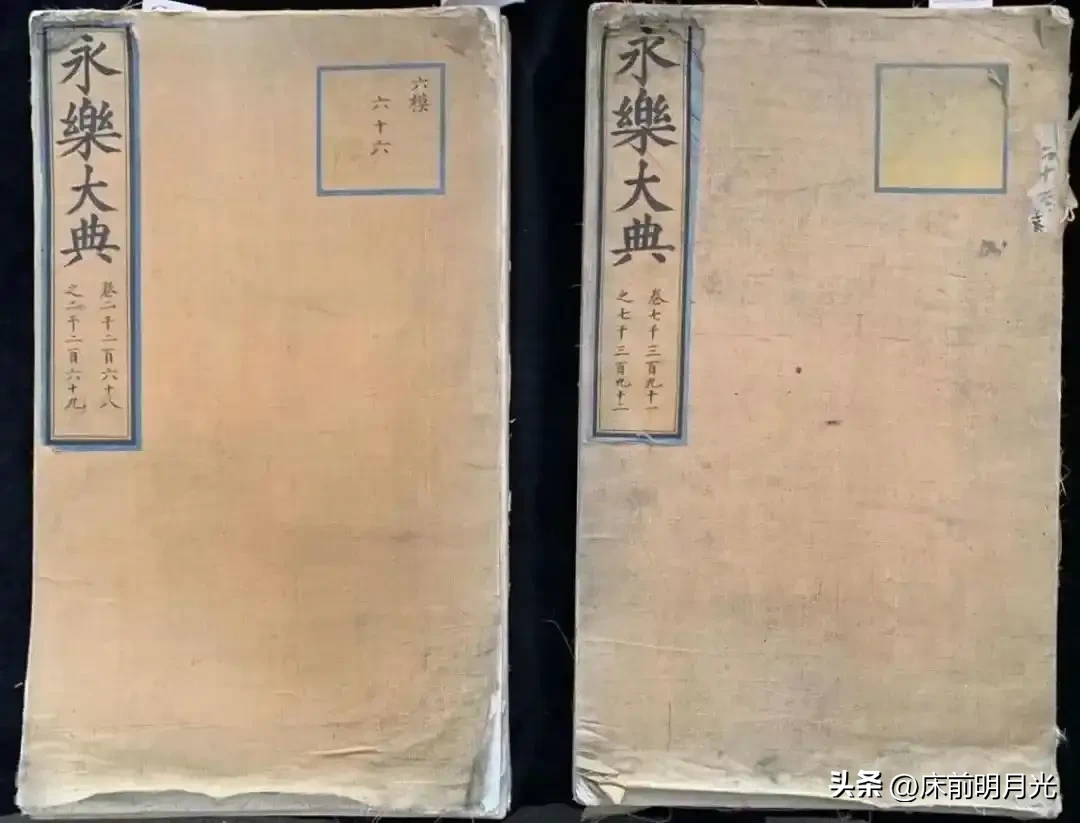 永樂大典
卷二千二百六十八
之二千二百六十九
六模
六十六
永樂大典
卷七千三百九十一
之七千三百九十二
头条 @床前明月光